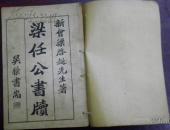 新會梁啓超先生著
梁任公書牘
吳徐書嵩